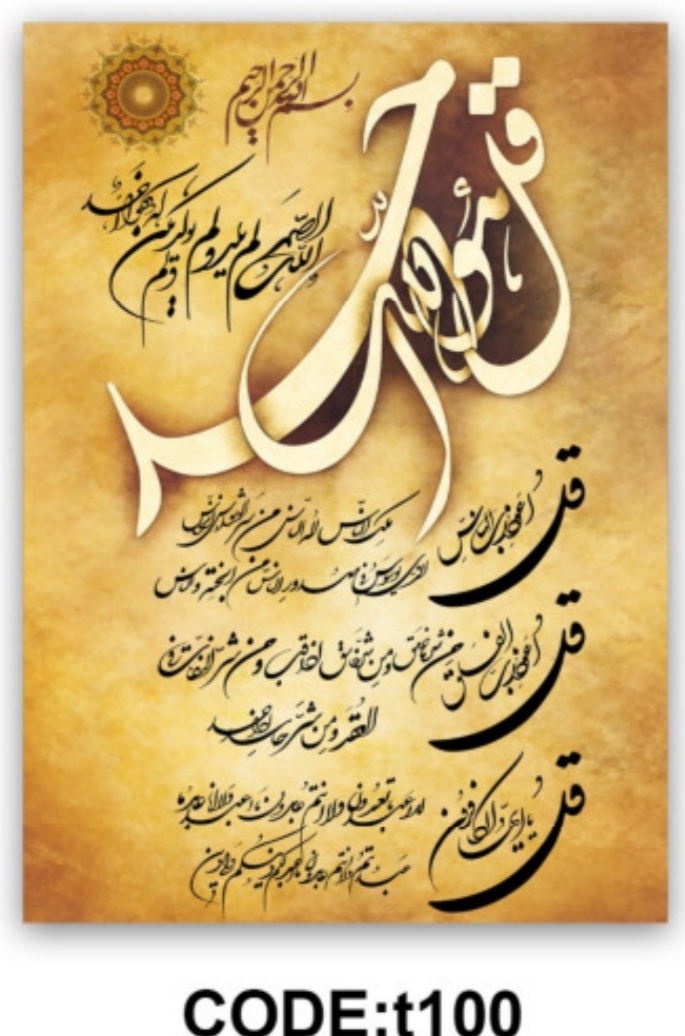 بسم الله الرحمن الرحيم
قل هو الله احد
الله الصمد لم يلد ولم يولد ولم يكن له كفوا احد
قل اعوذ برب الناس
ملك الناس اله الناس من شر الوسواس الخناس
الذي يوسوس في صدور الناس من الجنة والناس
قل اعوذ برب الفلق
من شر ما خلق ومن شر غاسق اذا وقب ومن شر النفاثات في
العقد ومن شر حاسد اذا حسد
قل يا ايها الكافرون
لا اعبد ما تعبدون ولا انتم عابدون ما اعبد ولا انا عابد ما
عبدتم ولا انتم عابدون ما اعبد لكم دينكم ولي دين
CODE:t100